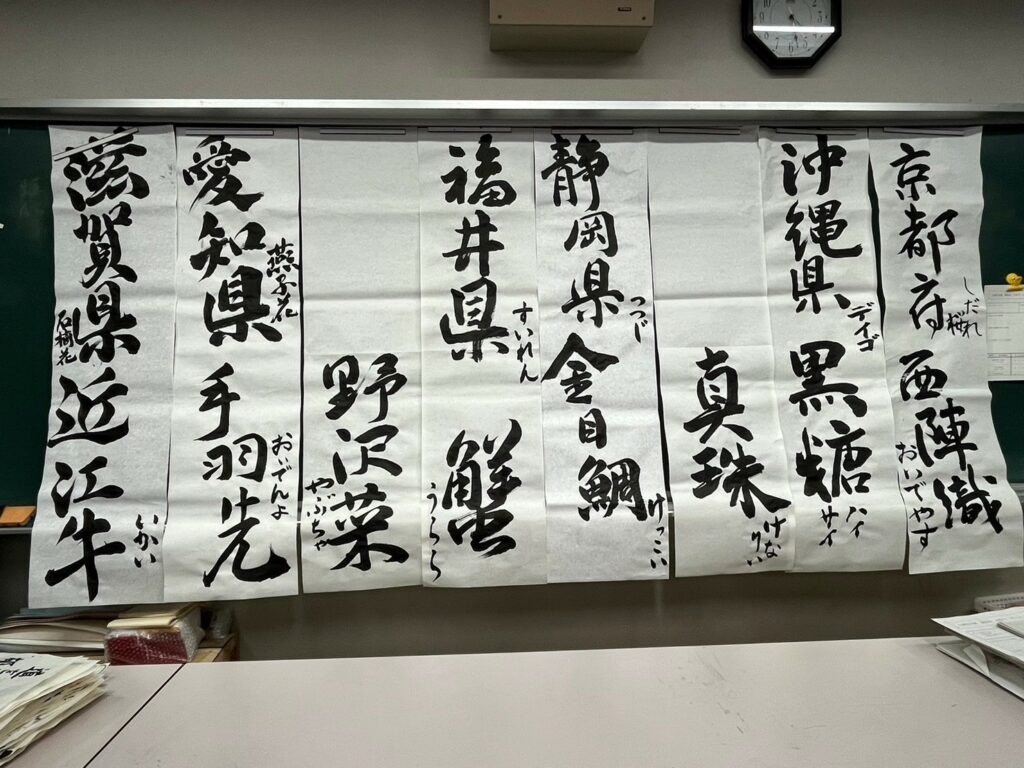 京都府
しだれ
桜
西陣織
おいでやす
沖縄県
デイゴ
黒糖
ハイ
サイ
真珠
けな
りい
静岡県
つつじ
金目鯛
けっこい
福井県
すいれん
蟹
うらら
野沢菜
やぶちゃ
愛知県
燕子花
手羽先
おいでんよ
滋賀県
石楠花
近江牛
いかい